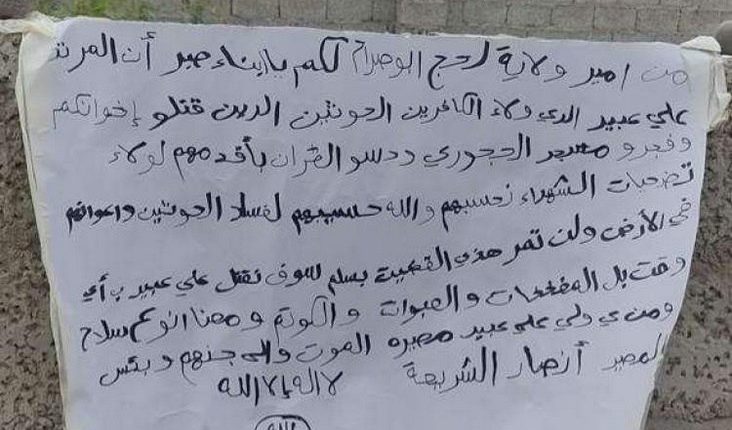 من امير ولاية لحج ابو صرام لكم يا ابناء صبر أن المرتد
علي عبيد الدي ولاء الكافرين الحوثين الدين قتلو إخوانكم
وفجرو مسجد الحجوري ودسو القران بأقدمهم لولاء
تضحيات الشهداء نحسبهم والله حسيبهم لفساد الحوثين واعوانهم
في الأرض ولن تمر هذي القضية بسلم لسوف نقتل علي عبيد ب أي
وقت بل المفخخات والعبوات والكوتم ومعنا انوع سلاح
ومن ي ولي علي عبيد مصيره الموت والى جنهم وبئس
المصير أنصار الشريعة لا اله إلا الله
الله